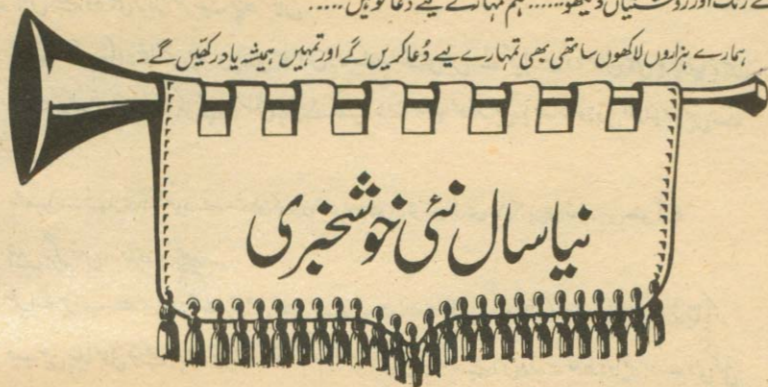 رنگ اور روشنیاں دیکھو...... ہم تمہارے لیے دعا گو ہیں.....
ہمارے ہزاروں لاکھوں ساتھی بھی تمہارے لیے دُعا کریں گے اور تمہیں ہمیشہ یاد رکھیں گے۔
نیا سال نئی خوشخبری